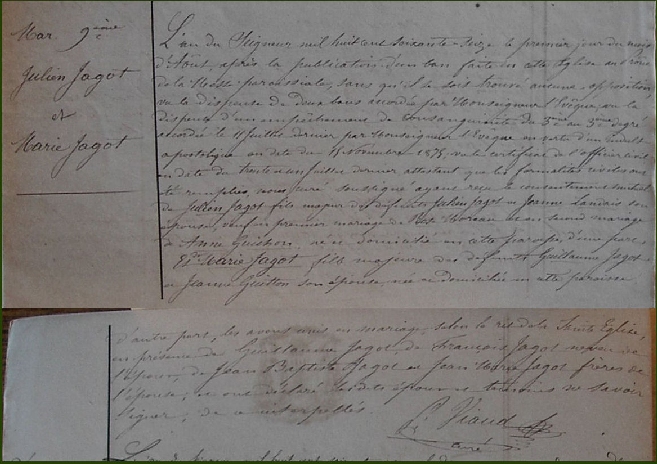 Mar. 9ème
Julien Jagot
et
Marie Jagot
L'an du Seigneur mil huit cent soixante-seize le premier jour du mois
d'Août, après la publication d'un ban faite en cette Eglise au prône
de la Messe paroissiale, sans qu'il se soit trouvé aucune opposition,
vu la dispense de deux bans accordée par Monseigneur l'Evêque, vu la
dispense d'un empêchement de consanguinité du 3ème au 3ème degré
accordée le Juillet dernier par Monseigneur l'Evêque en vertu d'un indult
apostolique en date du 15 Novembre 1875, vu le certificat de l'officier civil
en date du trente et un Juillet dernier attestant que les formalités civiles ont
été remplies, nous curé soussigné ayant reçu le consentement mutuel
de Julien Jagot fils majeur des défunts Julien Jagot et Jeanne Landais son
épouse, veuf en premier mariage de Moreau et en second mariage
de Anne Guitton, né et domicilié en cette paroisse, d'une part
Et Marie Jagot fille majeure des défunts Guillaume Jagot
et Jeanne Guitton son épouse, née et domiciliée en cette paroisse
d'autre part, les avons unis en mariage, selon le rit de la Sainte Eglise,
en présence de Guillaume Jagot, de François Jagot neveu de
l'époux, de Jean Baptiste Jagot et Jean Marie Jagot frères de
l'épouse, et ont déclaré les dits époux et témoins ne savoir
signer, de ce interpellés.
Viaud
curé